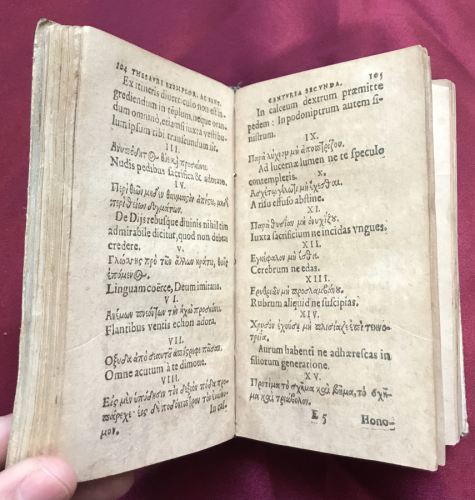 104 THESAVRI EXEMPLOR. AC SENT.
Ex itineris diuerticulo non est in-
grediendum in templum, neque oran-
dum omnino, etiamsi iuxta vestibu-
lum ipsum tibi transeundum sit.
III.
Ανυπόδητος θύε καὶ προσκύνει.
Nudis pedibus sacrifica & adorato.
IV.
Περὶ θεῶν μηδὲν θαυμαστὸν ἀπίστει, μηδὲ
περὶ θείων δογμάτων.
De Dijs rebusque diuinis nihil tam
admirabile dicitur, quod non debeas
credere.
V.
Γλώσσης πρὸ τῶν ἄλλων κράτει, θεοῖς
ἑπόμενος.
Linguam coërce, Deum imitans.
VI.
Ανέμων πνεόντων τὴν ἠχὼ προσκύνει.
Flantibus ventis echon adora.
VII.
Οξεῖαν ἀπὸ σεαυτοῦ ἀπόστρεφε πᾶσαν.
Omne acutum à te dimoue.
VIII.
Εἰς μὲν ὑπόδησιν τὸν δεξιὸν πόδα προ-
πάρεχε· εἰς δὲ ποδόνιπτρον τὸν εὐώνυ-
μον.
In cal-
CENTVRIA SECVNDA. 105
In calceum dextrum præmitte
pedem: In podoniptrum autem si-
nistrum.
IX.
Παρὰ λύχνῳ μὴ ἐσοπτρίζου.
Ad lucernæ lumen ne te speculo
contempleris.
X.
Ασχέτῳ γέλωτι μὴ ἔχεσθαι.
A risu effuso abstine.
XI.
Παρὰ θυσίαν μὴ ὀνυχίζου.
Iuxta sacrificium ne incidas vngues.
XII.
Εγκέφαλον μὴ ἔσθιε.
Cerebrum ne edas.
XIII.
Ερυθρὸν μὴ προσλαμβάνου.
Rubrum aliquid ne suscipias.
XIV.
Χρυσὸν ἐχούσῃ μὴ πλησίαζε ἐπὶ τεκνο-
ποιίᾳ.
Aurum habenti ne adhærescas in
filiorum generatione.
XV.
Προτίμα τὸ σχῆμα καὶ βῆμα, τὸ σχῆ-
μα καὶ τριώβολον.
E 5 Hono-